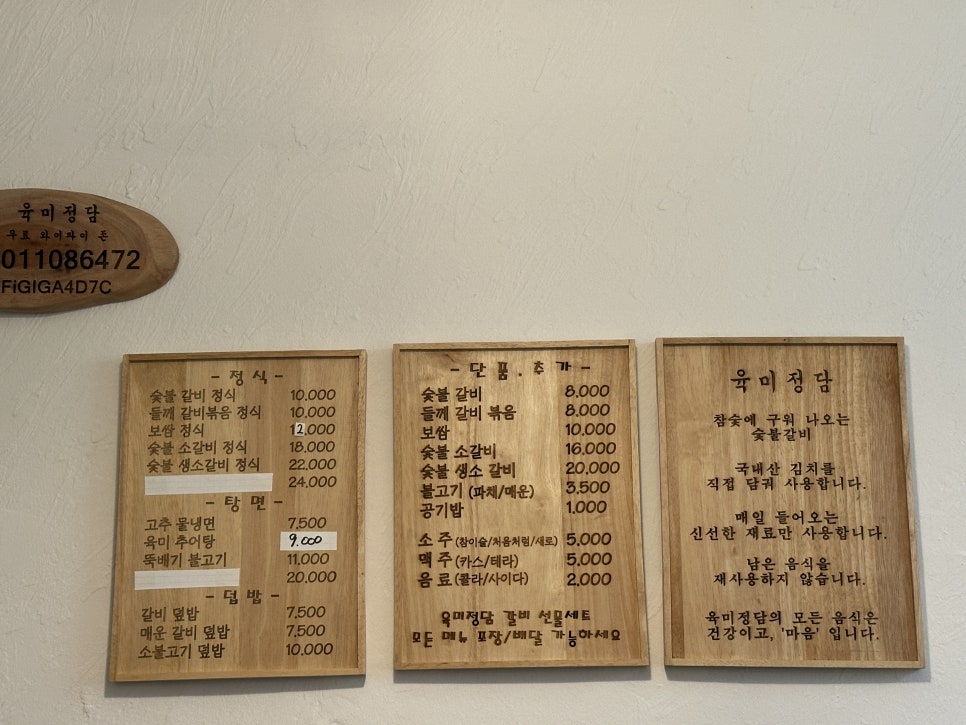 육미정담
무료 와이파이 존
011086472
FiGIGA4D7C
- 정식 -
숯불 갈비 정식 10,000
들깨 갈비볶음 정식 10,000
보쌈 정식 12,000
숯불 소갈비 정식 18,000
숯불 생소갈비 정식 22,000
24,000
- 탕 면 -
고추 물냉면 7,500
육미 추어탕 9.000
뚝배기 불고기 11,000
20,000
- 덥밥 -
갈비 덮밥 7,500
매운 갈비 덮밥 7,500
소불고기 덮밥 10,000
- 단 품 . 추 가 -
숯불 갈비 8,000
들깨 갈비 볶음 8,000
보쌈 10,000
숯불 소갈비 16,000
숯불 생소 갈비 20,000
불고기 (파채/매운) 3,500
공기밥 1,000
소 주 (참이슬/처음처럼/새로) 5,000
맥 주 (카스/테라) 5,000
음 료 (콜라/사이다) 2,000
육미정담 갈비 선물세트
모든 메뉴 포장/배달 가능하세요
육미정담
참숯에 구워 나오는
숯불갈비
국내산 김치를
직접 담궈 사용합니다.
매일 들어오는
신선한 재료만 사용합니다.
남은 음식을
재사용하지 않습니다.
육미정담의 모든 음식은
건강이고, '마음' 입니다.